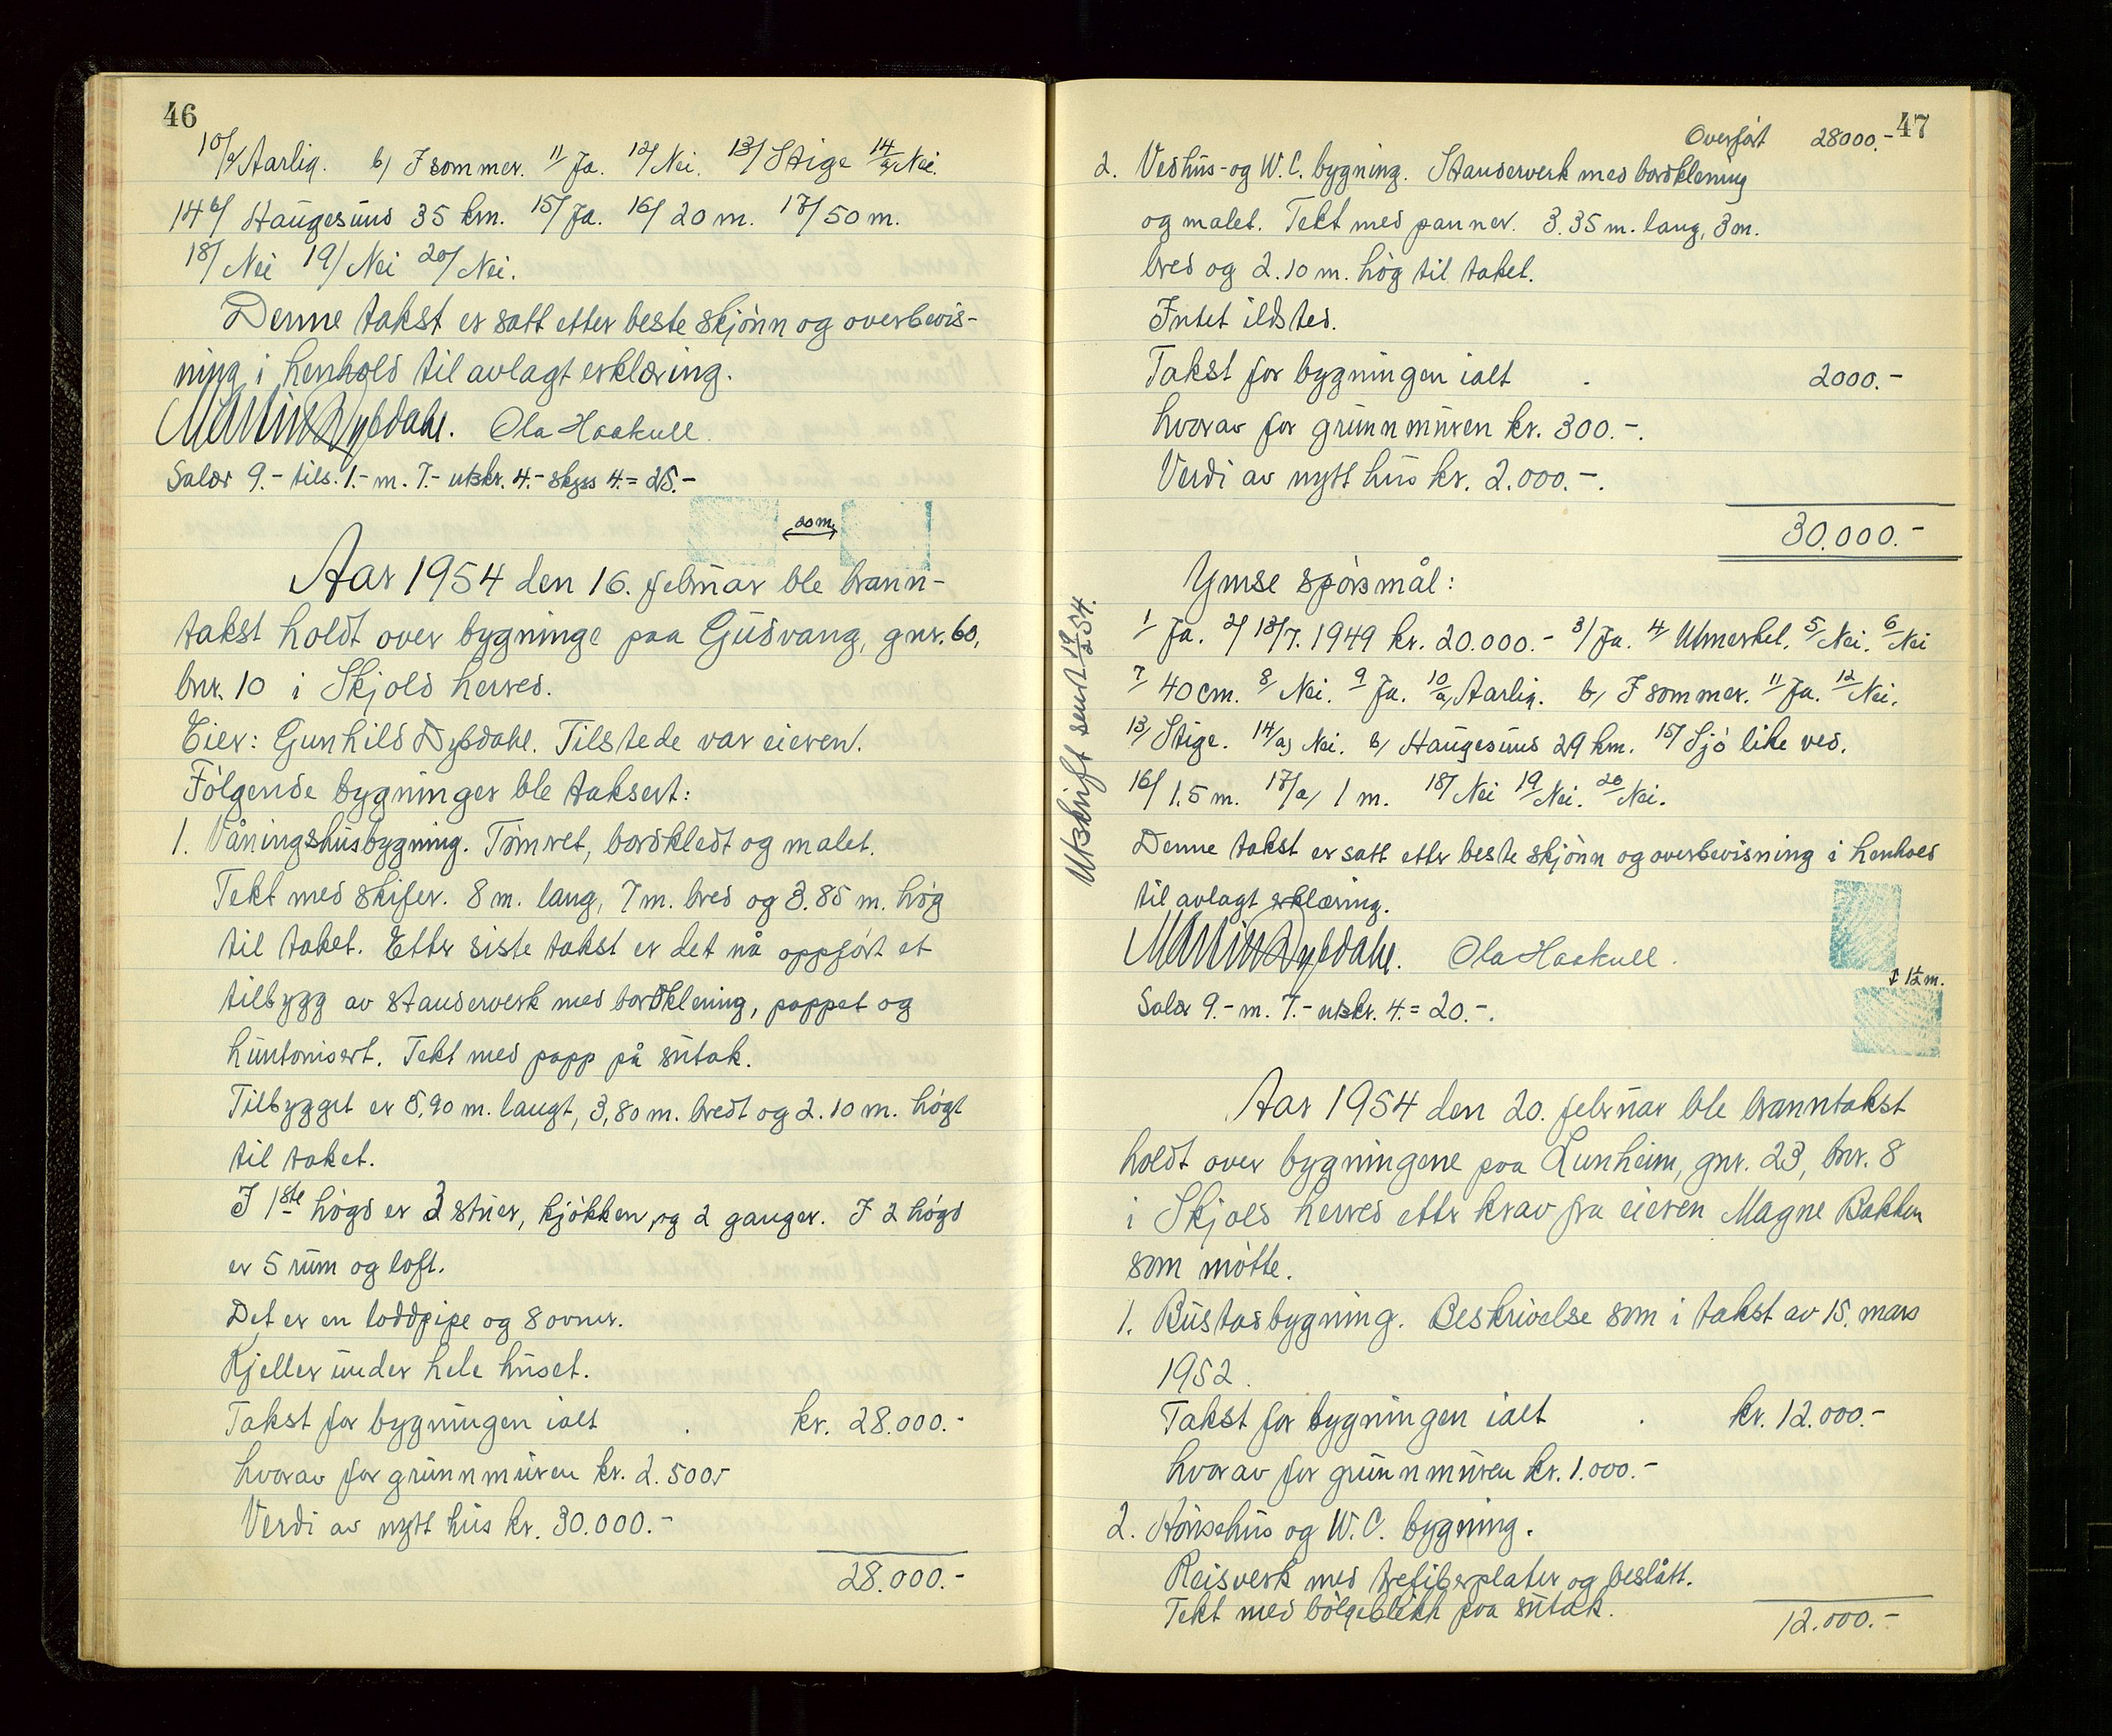 46
10/a/ Aarlig. b/ I sommer. 11/ Ja. 12/ Nei. 13/ Stige 14/a/ Nei.
14b/ Haugesund 35 km. 15/ Ja. 16/ 20 m. 17/ 50 m.
18/ Nei 19/ Nei 20/ Nei.
Denne takst er satt etter beste skjönn og overbevis-
ning i henhold til avlagt erklæring.
Martin Dybdahl. Ola Haakull.
Salær 9.- tils. 1.- m. 7.- utskr. 4.- skyss 4.= 25.-
20 m.
Aar 1954 den 16. februar ble brann-
takst holdt over bygninge paa Gudvang, gnr. 60,
bnr. 10 i Skjold herred.
Eier: Gunhild Dybdahl. Tilstede var eieren.
Fölgende bygninger ble taksert:
1. Våningshusbygning. Tömret, bordkledt og malet.
Tekt med skifer. 8 m. lang, 7 m. bred og 3.85 m. hög
til taket. Etter siste takst er det nå oppfört et
tilbygg av standerverk med bordklening, pappet og
huntonisert. Tekt med papp på sutak.
Tilbygget er 5,90 m. langt, 3,80 m. bredt og 2.10 m. högt
til taket.
I 1ste högd er 3 stuer, kjökken og 2 ganger. I 2 högd
er 5 rum og loft.
Det er en loddpipe og 8 ovner.
Kjeller under hele huset.
Takst for bygningen ialt . kr. 28.000.-
hvorav for grunnmuren kr. 2.500.-
Verdi av nytt hus kr. 30.000.-
28.000.-
47
Overfört 28000.-
2. Vedhus- og W.C. bygning. Standerverk med bordklening
og malet. Tekt med panner. 3.35 m. lang, 3 m.
bred og 2.10 m. hög til taket.
Intet ildsted.
Takst for bygningen ialt . 2000.-
hvorav for grunnmuren kr. 300.-.
Verdi av nytt hus kr. 2.000.-.
30.000.-
Ymse spörsmål:
1/ Ja. 2/ 13/7. 1949 kr. 20.000.- 3/ Ja. 4/ Utmerket. 5/ Nei. 6/ Nei
7/ 40 cm. 8/ Nei. 9/ Ja. 10/a/ Aarlig. b/ I sommer. 11/ Ja. 12/ Nei.
13/ Stige. 14/a/ Nei. b/ Haugesund 29 km. 15/ Sjö like ved.
16/ 1.5 m. 17/a/ 1 m. 18/ Nei 19/ Nei. 20/ Nei.
Utskrift sendt 19/2 54.
Denne takst er satt etter beste skjönn og overbevisning i henhold
til avlagt erklæring.
Martin Dybdahl. Ola Haakull.
1½ m.
Salær 9.- m. 7.- utskr. 4.= 20.-.
Aar 1954 den 20. februar ble branntakst
holdt over bygningene paa Lunheim, gnr. 23, bnr. 8
i Skjold herred etter krav fra eieren Magne Bakken
som mötte.
1. Bustadbygning. Beskrivelse som i takst av 15. mars
1952.
Takst for bygningen ialt . kr. 12.000.-
hvorav for grunnmuren kr. 1.000.-
2. Hönsehus og W.C. bygning.
Reisverk med trefiberplater og beslått.
Tekt med bölgeblikk paa sutak.
12.000.-